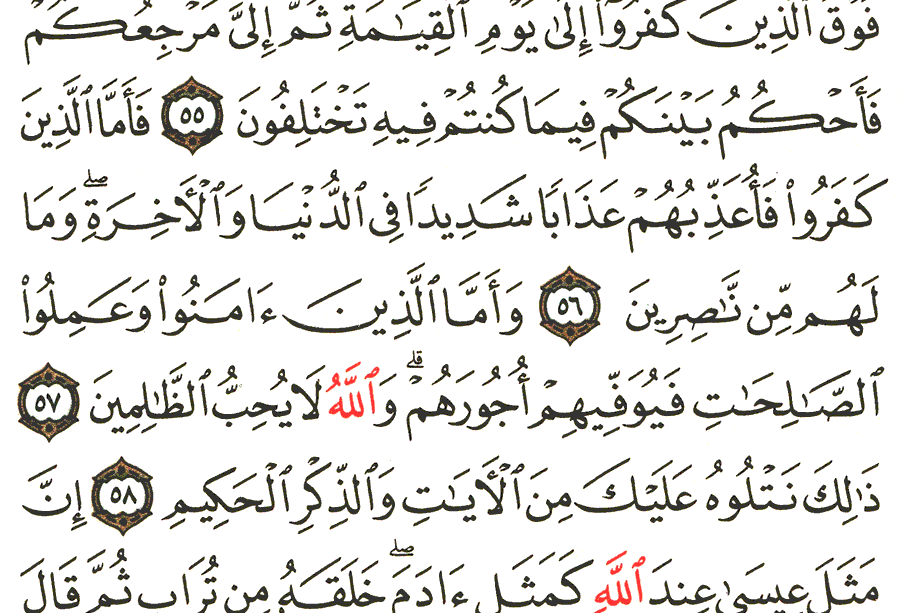 فَوْقَ ٱلَّذِينَ كَفَرُوٓا۟ إِلَىٰ يَوْمِ ٱلْقِيَـٰمَةِ ثُمَّ إِلَىَّ مَرْجِعُكُمْ
فَأَحْكُمُ بَيْنَكُمْ فِيمَا كُنتُمْ فِيهِ تَخْتَلِفُونَ ٥٥ فَأَمَّا ٱلَّذِينَ
كَفَرُوا۟ فَأُعَذِّبُهُمْ عَذَابًا شَدِيدًا فِى ٱلدُّنْيَا وَٱلْأَخِرَةِ ۖ وَمَا
لَهُم مِّن نَّـٰصِرِينَ ٥٦ وَأَمَّا ٱلَّذِينَ ءَامَنُوا۟ وَعَمِلُوا۟
ٱلصَّـٰلِحَـٰتِ فَيُوَفِّيهِمْ أُجُورَهُمْ ۗ وَٱللَّهُ لَا يُحِبُّ ٱلظَّـٰلِمِينَ ٥٧
ذَٰلِكَ نَتْلُوهُ عَلَيْكَ مِنَ ٱلْأَيَـٰتِ وَٱلذِّكْرِ ٱلْحَكِيمِ ٥٨ إِنَّ
مَثَلَ عِيسَىٰ عِندَ ٱللَّهِ كَمَثَلِ ءَادَمَ ۖ خَلَقَهُۥ مِن تُرَابٍ ثُمَّ قَالَ